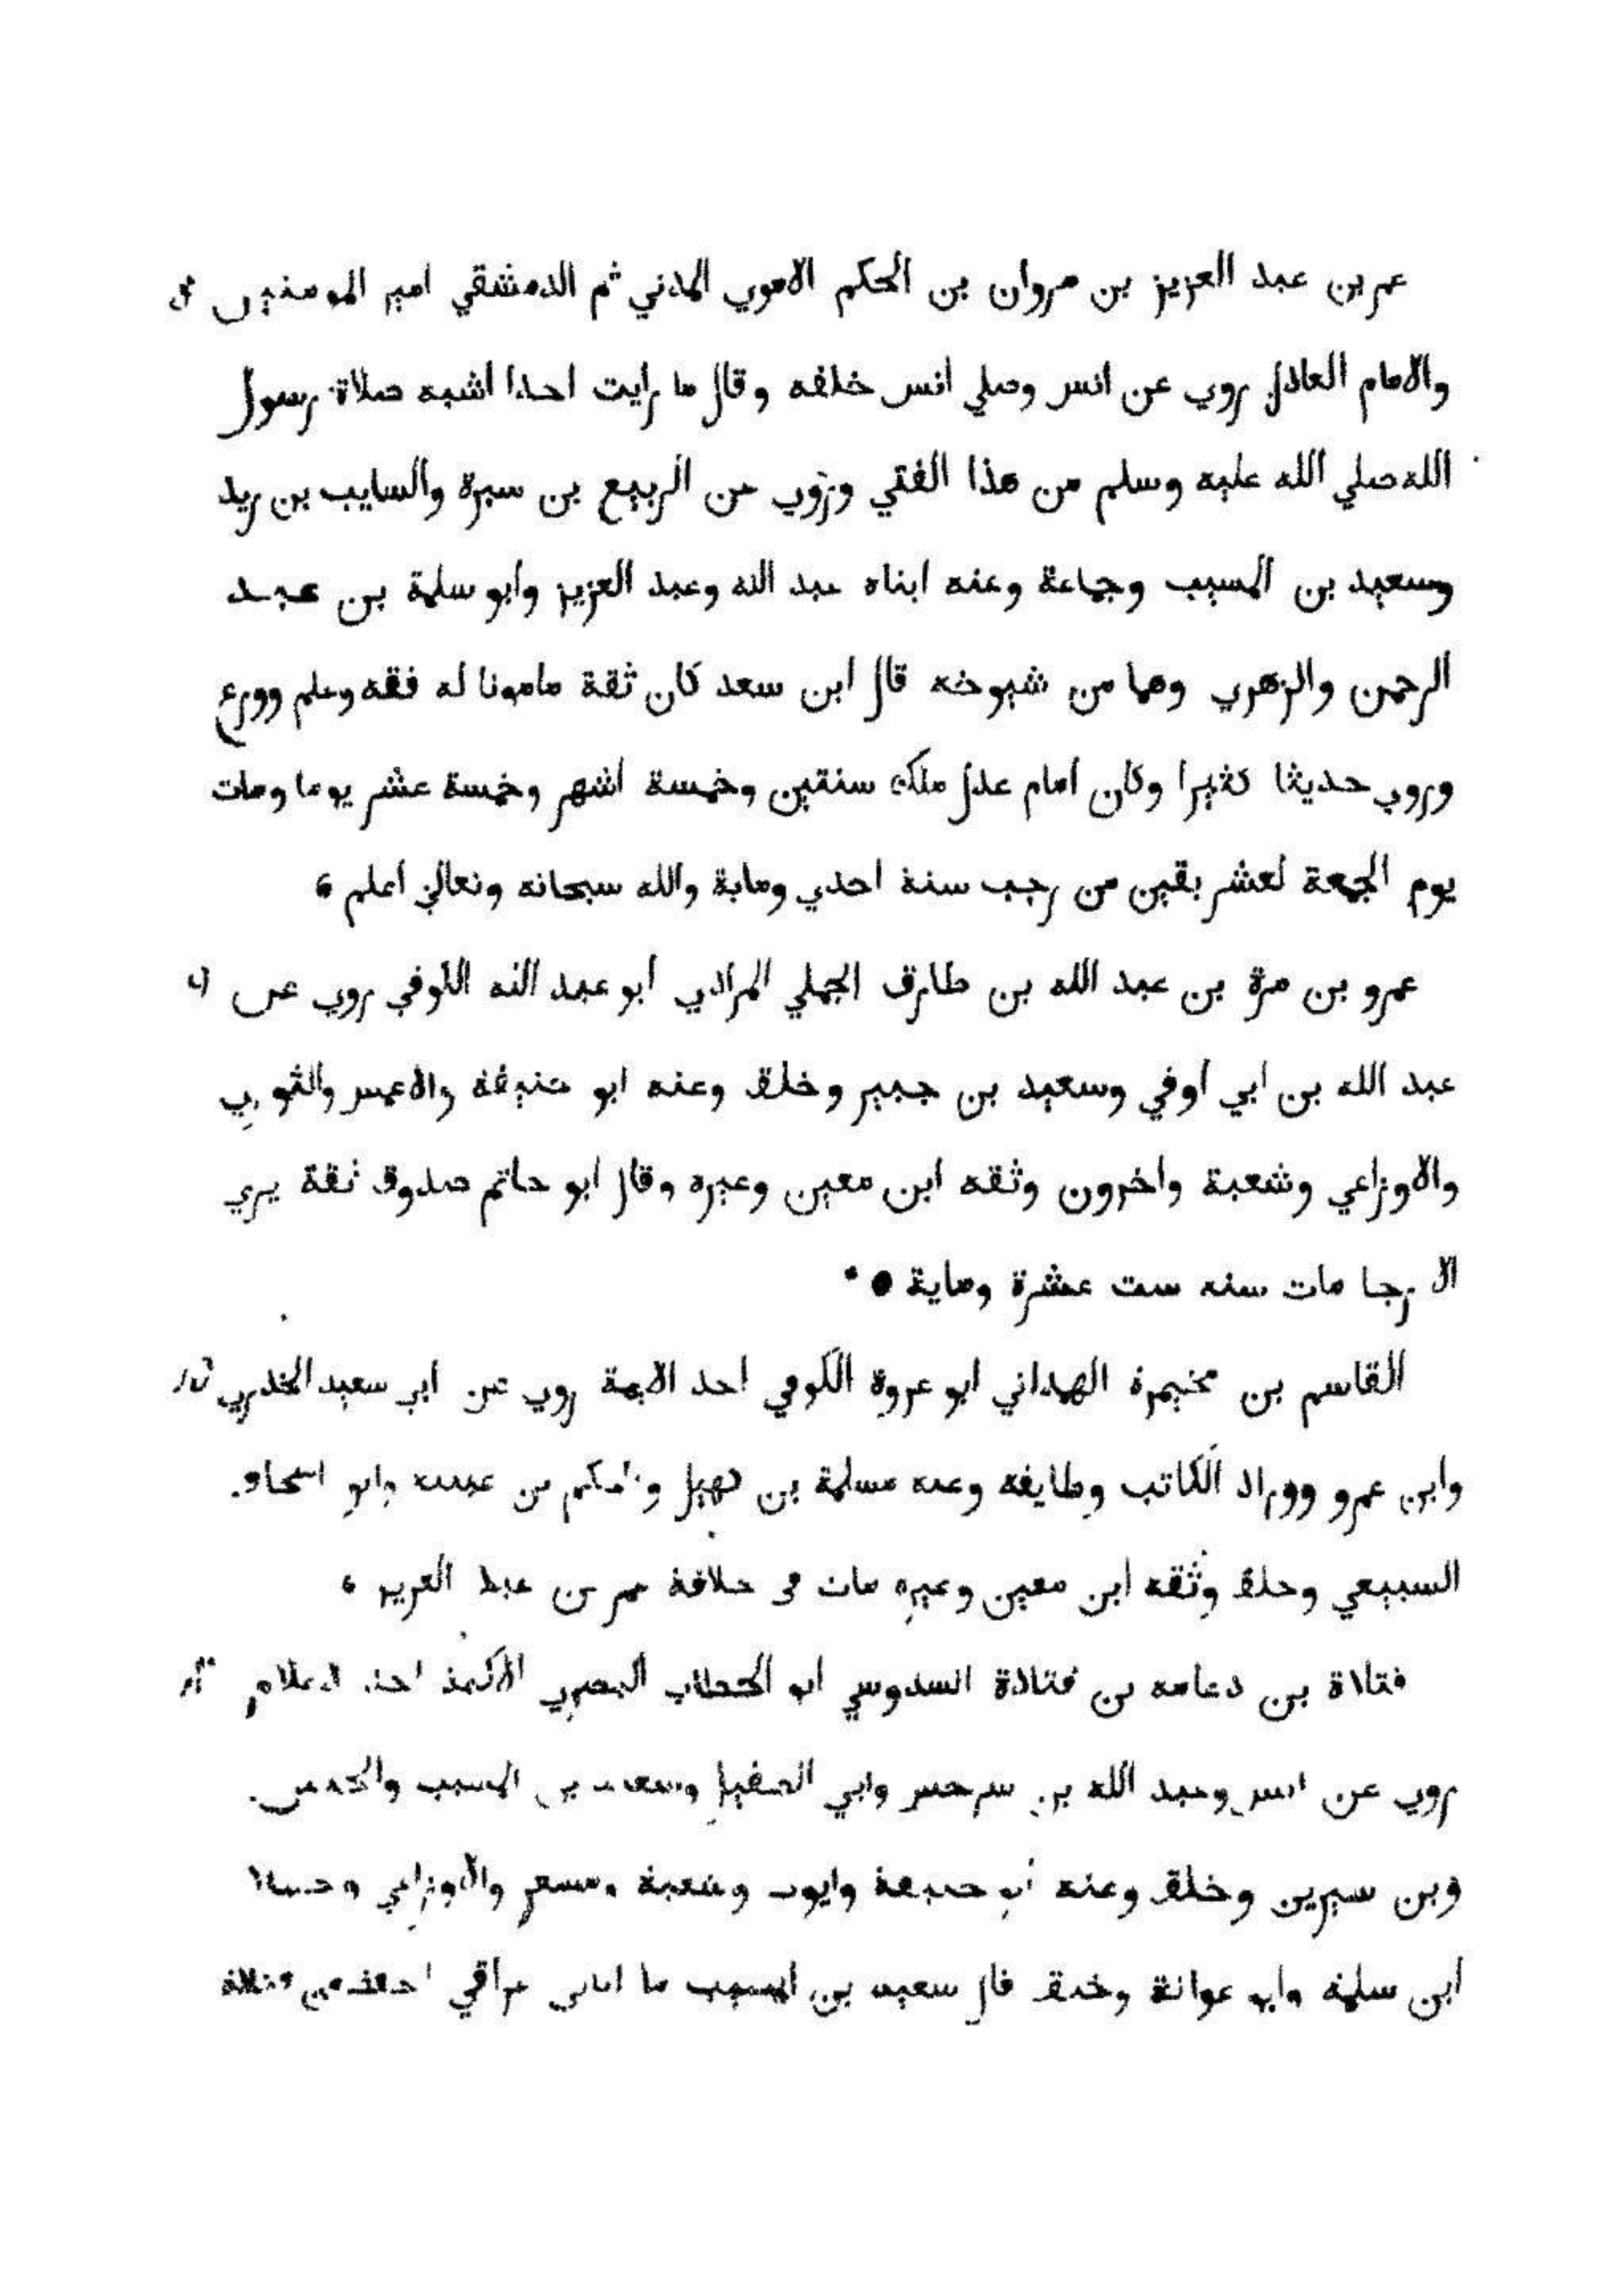 عمر بن عبد العزيز بن مروان بن الحكم الاموي المدني ثم الدمشقي امير المومنين
والامام العادل روي عن انس وصلي انس خلفه وقال ما رايت احدا اشبه صلاة رسول
الله صلي الله عليه وسلم من هذا الفتي وروي عن الربيع بن سبرة والسايب بن يزيد
وسعيد بن المسيب وجماعة وعنه ابناه عبد الله وعبد العزيز وابو سلمة بن عبد
الرحمن والزهري وهما من شيوخه قال ابن سعد كان ثقة مامونا له فقه وعلم وورع
وروي حديثا كثيرا وكان امام عدل ملكه سنتين وخمسة اشهر وخمسة عشر يوما ومات
يوم الجمعة لعشر بقين من رجب سنة احدي وماية والله سبحانه وتعالي اعلم
عمرو بن مرة بن عبد الله بن طارق الجملي المرادي ابو عبد الله الكوفي روي عن
عبد الله بن ابي اوفي وسعيد بن جبير وخلق وعنه ابو حنيفة والاعمش والثوري
والاوزاعي وشعبة واخرون وثقه ابن معين وغيره وقال ابو حاتم صدوق ثقة يري
الارجا مات سنه ست عشرة وماية
القاسم بن مخيمرة الهمداني ابو عروة الكوفي احد الايمة روي عن ابي سعيد الخدري
وابن عمرو ووراد الكاتب وطايفه وعنه مسلمة بن كهيل والحكم بن عيينه وابو اسحاق
السبيعي وخلق وثقه ابن معين وغيره مات في خلافة عمر بن عبد العزيز
قتادة بن دعامه بن قتادة السدوسي ابو الخطاب البصري الاكمه احد الاعلام
روي عن انس وعبد الله بن سرجس وابي الطفيل وسعيد بن المسيب والحسن
وبن سيرين وخلق وعنه ابو حنيفة وايوب وشعبة ومسعر والاوزاعي وحماد
ابن سلمة وابو عوانة وخلق قال سعيد بن المسيب ما اتاني عراقي احفظ من قتادة